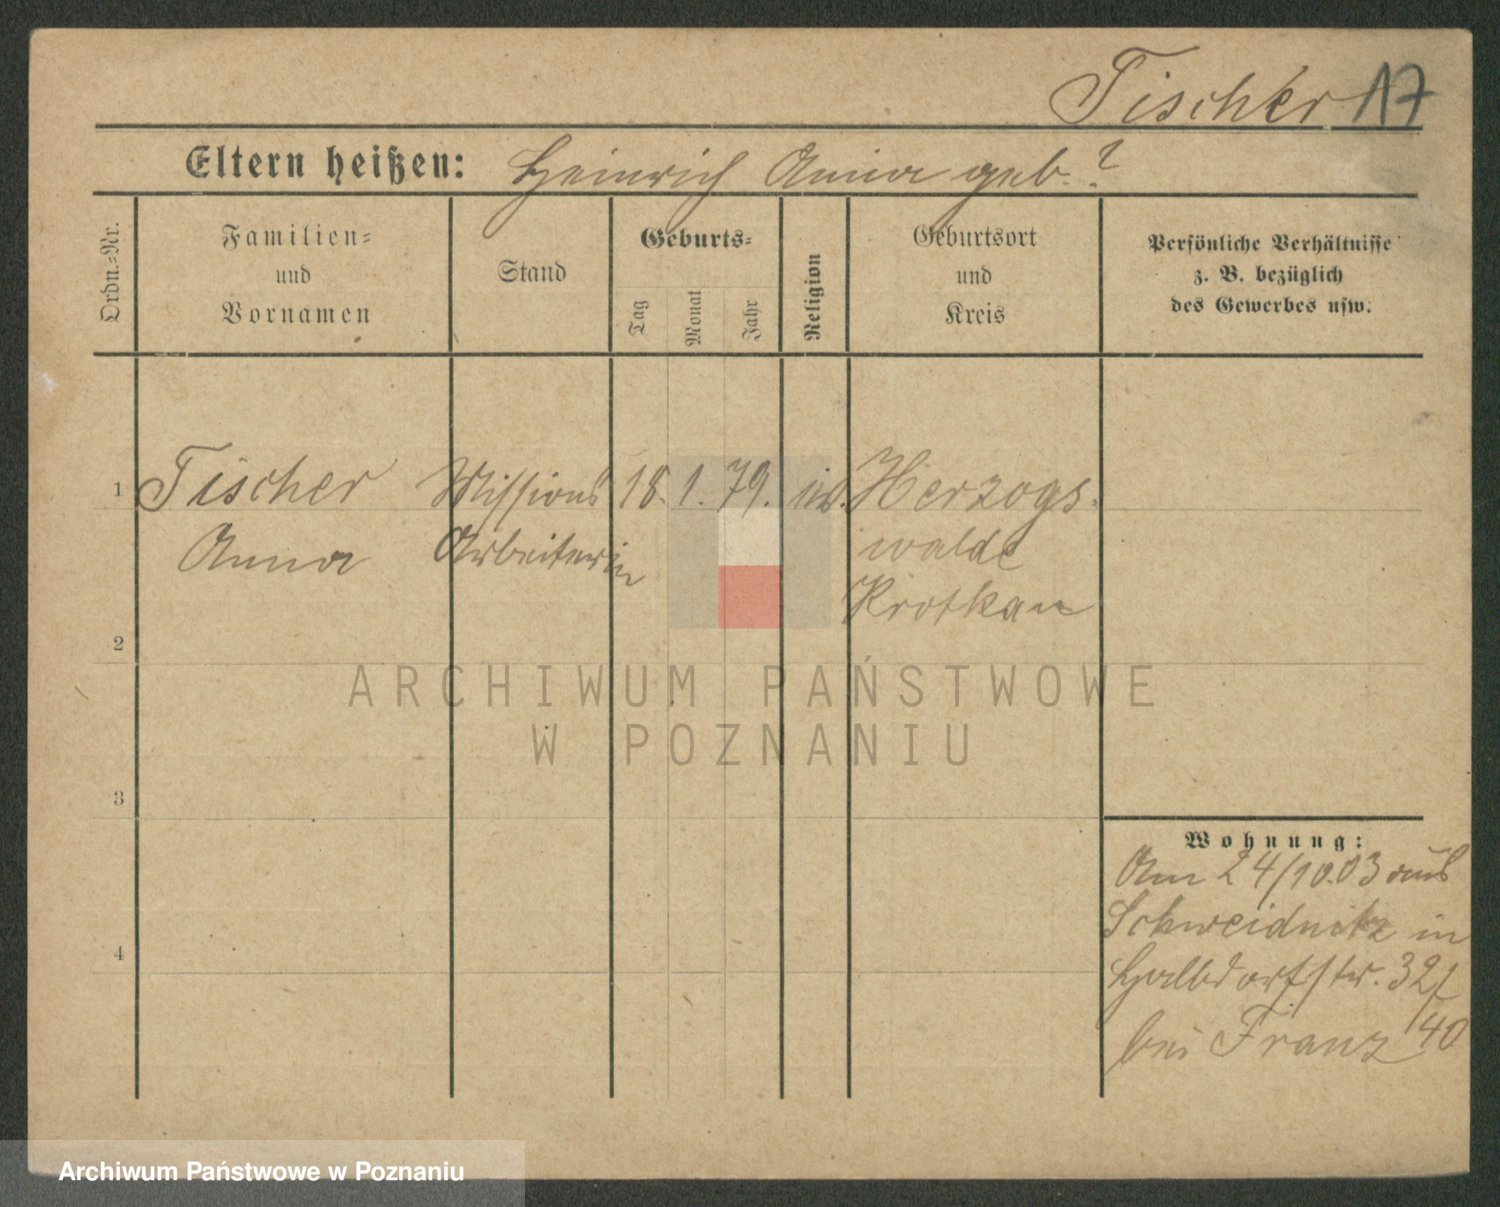 Tischer 17
Eltern heißen: Heinrich Anna geb. ?
Ordn.=Nr.
Familien=
und
Vornamen
Stand
Geburts=
Tag
Monat
Jahr
Religion
Geburtsort
und
Kreis
Persönliche Verhältnisse
z. B. bezüglich
des Gewerbes usw.
1 Tischer Missions 18. 1. 79. Herzogs-
Anna Arbeiterin walde
2
3
4
Wohnung:
Am 24/10.03 aus
Schweidnitz in
Halbdorfstr. 32/
40
bei Franz
ARCHIWUM PAŃSTWOWE
W POZNANIU
Archiwum Państwowe w Poznaniu